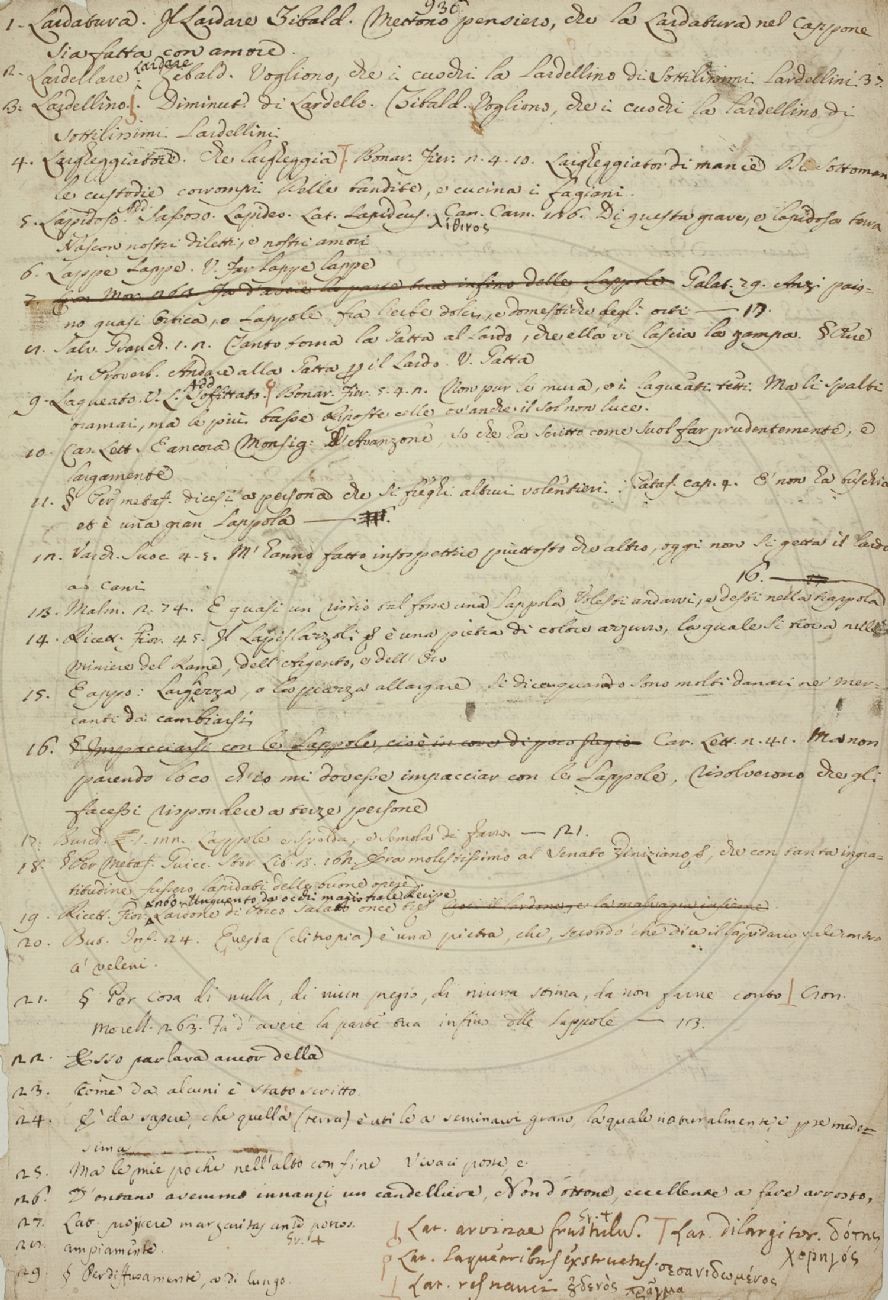 930
1. Lardatura. Il Lardare Zibald. Mettono pensiero, che la Lardatura nel Cappone
sia fatta con amore.
2. Lardellare Lardare Zibald. Vogliono, che i cuochi la Lardellino di Sottilissimi Lardellini 3.
3. Lardellino. Diminut. di Lardello. Zibald. Vogliono, che i cuochi la lardellino di
sottilissimi Lardellini
4. Largheggiatore. Che largheggia Bonar. Fier. 2. 4. 10. Largheggiator di mancie
le custodie corrompi delle bandite, e cucina i fagiani.
5. Lapidoso. Add. Sassoso. Lapideo. Lat. Lapideus. λίθινος Can. Carn. 116. Di questa grave, e lapidosa terra
Nascon nostri diletti, e nostri amori
6. Lappe Lappe. V. Far lappe lappe
7. Cron. Mor. 263. Fa d'avere la parte tua infino delle Lappole Galat. 29. Anzi
no quasi bitica, e Lappole fra l'erbe dolci, e domestiche degli orti — 17.
Salv. Granch. 1. 2. Tanto torna la Gatta al Lardo, che ella vi lascia la zampa. §
in Proverb. Andare alla Gatta pel il Lardo. V. Gatta
9. Laqueato. Add. V. L. Soffittato. Bonar. Fier. 5. 4. 2. Non pur le mura, e i laqueati tetti, Ma li spalti
oramai, ma le più basse Riposte celle ov'anche il Sol non luce.
10. Car. Lett. E ancora Monsig: d'Avanzone, so che ha scritto come suol far prudentemente, e
largamente
11. § Per metaf. dicesi a persona che si freghi altrui volentieri: Pataf. cap. 4. E' non ha
et è una gran Lappola —
12. Varch. Suoc. 4. 5. M'hanno fatto insospettire piuttosto che altro, oggi non si getta il lardo
a' cani 16. —
13. Malm. 2. 74. E quasi un rischio tal fosse una Lappola Volesti andarvi, e desti nella trappola
14. Ricett. Fior. 45. Il Lapislazzoli § è una pietra di colore azzurro, la quale si trova nelle
miniere del Rame, dell'Argento, e dell'Oro
15. E appo: Largezza, o la piazza allargare si dice quando sono molti danari ne' Mer-
canti da cambiarsi
16. § Impacciarsi con le Lappole, cioè in cose di poco pregio Car. Lett. 2. 41. Ma non
parendo loco ch'io mi dovesse impacciar con le Lappole, risolverono che gli
facessi rispondere a terze persone
17. Burch. 2. 1. Lappole e spolda, e semola di farro — 21.
18. § Per Metaf. Guicc. Stor. Lib. Era molestissimo al Senato Viniziano, che con tanta ingra-
titudine fussero lapidati delle buone opere
19. Ricett. Fior. Unguento da occhi magistrale Recipe Lardone di Porco Salato once tre
20. But. Inf. 24. Questa (elitropia) è una pietra, che, secondo che dice il lapidario vale contro
a' veleni.
21. § Per cosa di nulla, di niun pregio, di niuna stima, da non farne conto Cron.
Morell. 263. Fa d'avere la parte tua infino delle Lappole — 13.
22. Esso parlava ancor della
23. Come da alcuni è stato scritto
24. E' da sapere, che quella (terra) è utile a seminarvi grano, la quale naturalmente è per mede-
sima
25. Ma le mie poche nell'alto confine Vivaci poste, e
26. D'ontano avemmo innanzi un candelliere, e Non d'ottone, eccellente a fare arrosto,
27. Lat. projicere margaritas ante porcos.
28. ampiamente. Gr. +
29. § Per diffusamente, o di lungo.
Lat. arvinae frustulus. Gr. + Lat. dilargitor. δότης
Lat. laquearibus exstructus. σεσανιδωμένος χορηγός
Lat. res nauci οὐδενὸς πρᾶγμα